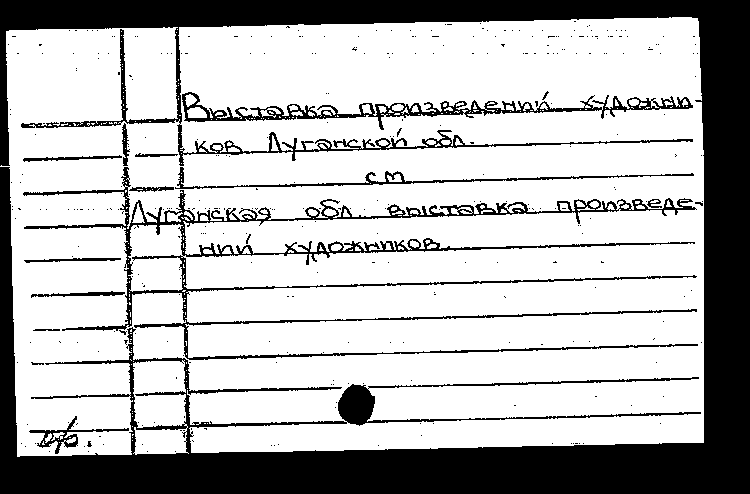 Выставка произведений художни-
ков Луганской обл.
см
Луганская обл. выставка произведе-
ний художников.